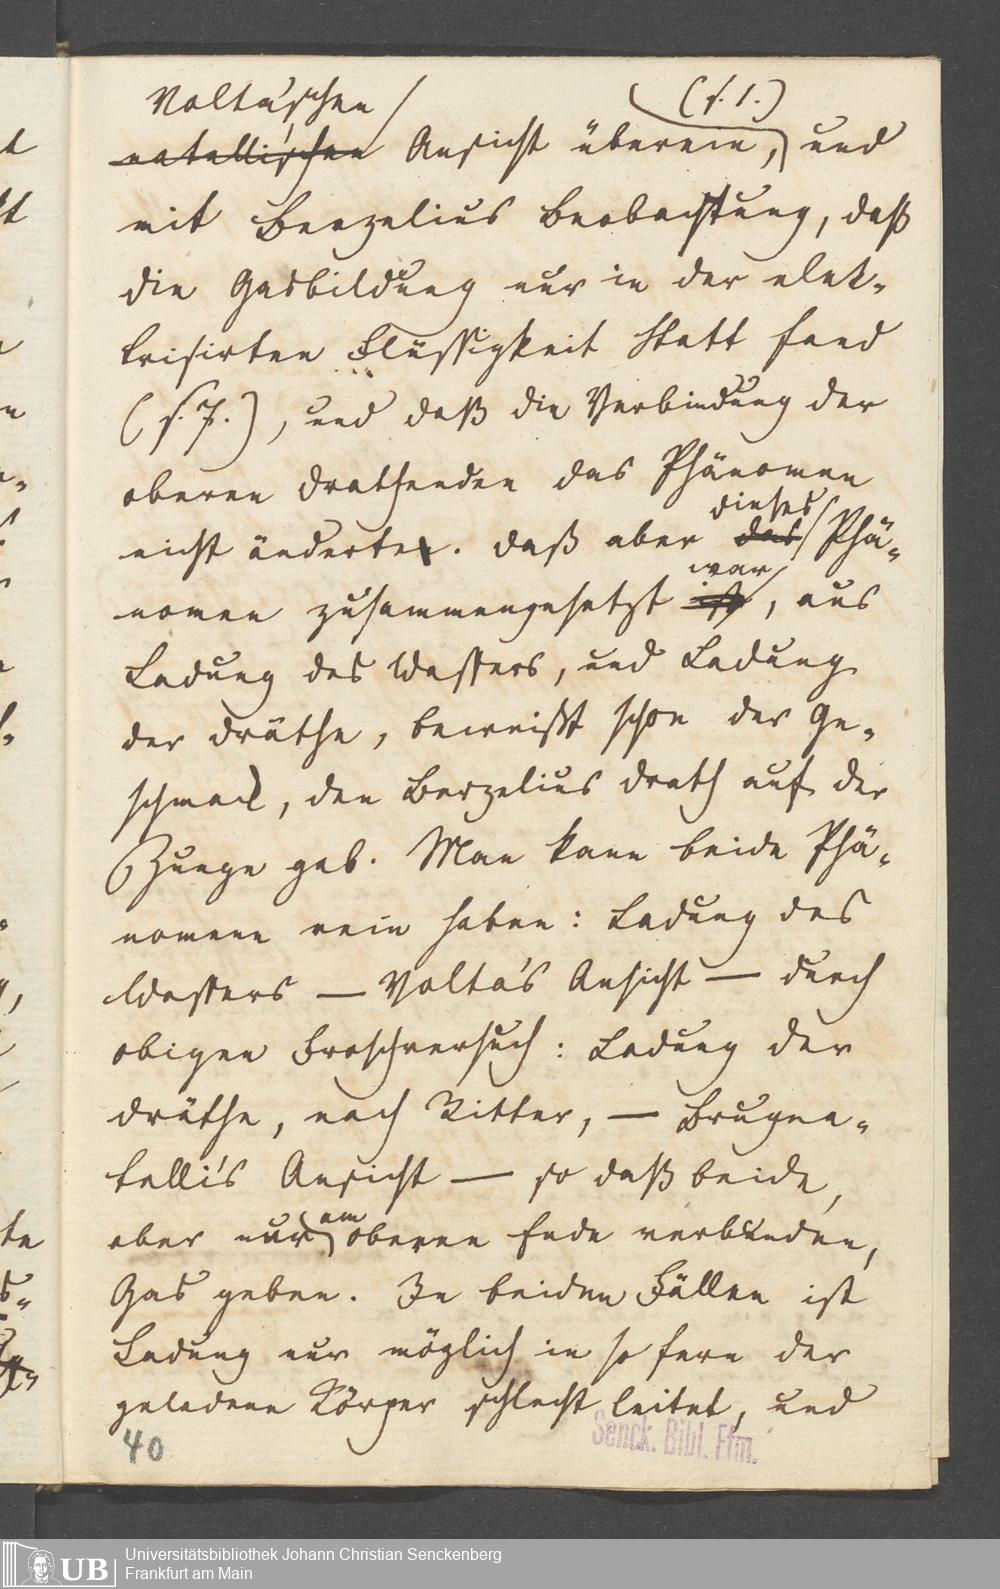 Voltaʼschen / (s. 1.)
natellischen Ansicht überein, und
mit Berzelius Beobachtung, daß
die Gasbildung nur in der elek-
trisirten Flüssigkeit Statt fand
(s. 7.), und daß die Verbindung der
oberen Drathenden das Phänomen
dieses
nicht änderte. Daß aber das Phä-
war
nomen zusammengesetzt ist, aus
Ladung des Wassers, und Ladung
der Dräthe, beweißt schon der Ge-
schmack, den Berzelius Drath auf der
Zunge gab. Man kann beide Phä-
nomene rein haben: Ladung des
Wassers — Volta's Ansicht — durch
obigen Froschversuch: Ladung der
Dräthe, nach Ritter, — Brugna-
telli's Ansicht — so daß beide,
am
aber nur oberen Ende verbunden,
Gas geben. In beiden Fällen ist
Ladung nur möglich in so fern der
geladene Körper schlecht leitet, und
40
Senck. Bibl. Ffm.
UB
Universitätsbibliothek Johann Christian Senckenberg
Frankfurt am Main